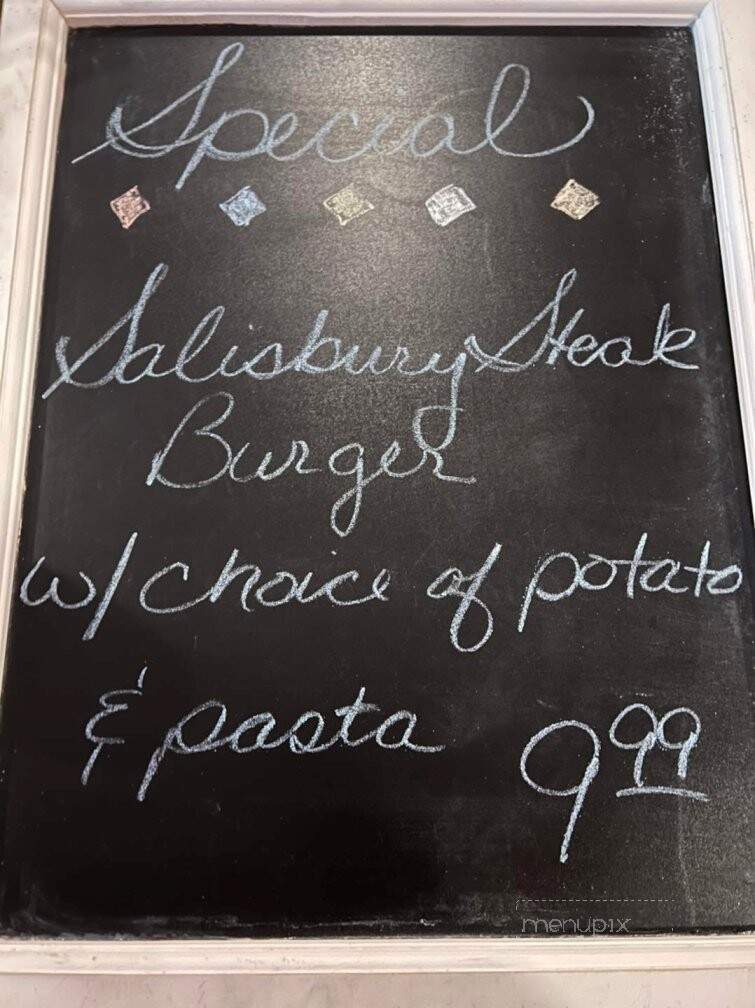 Special
Salisbury Steak
Burger
w/ choice of potato
& pasta 9.99
menupix